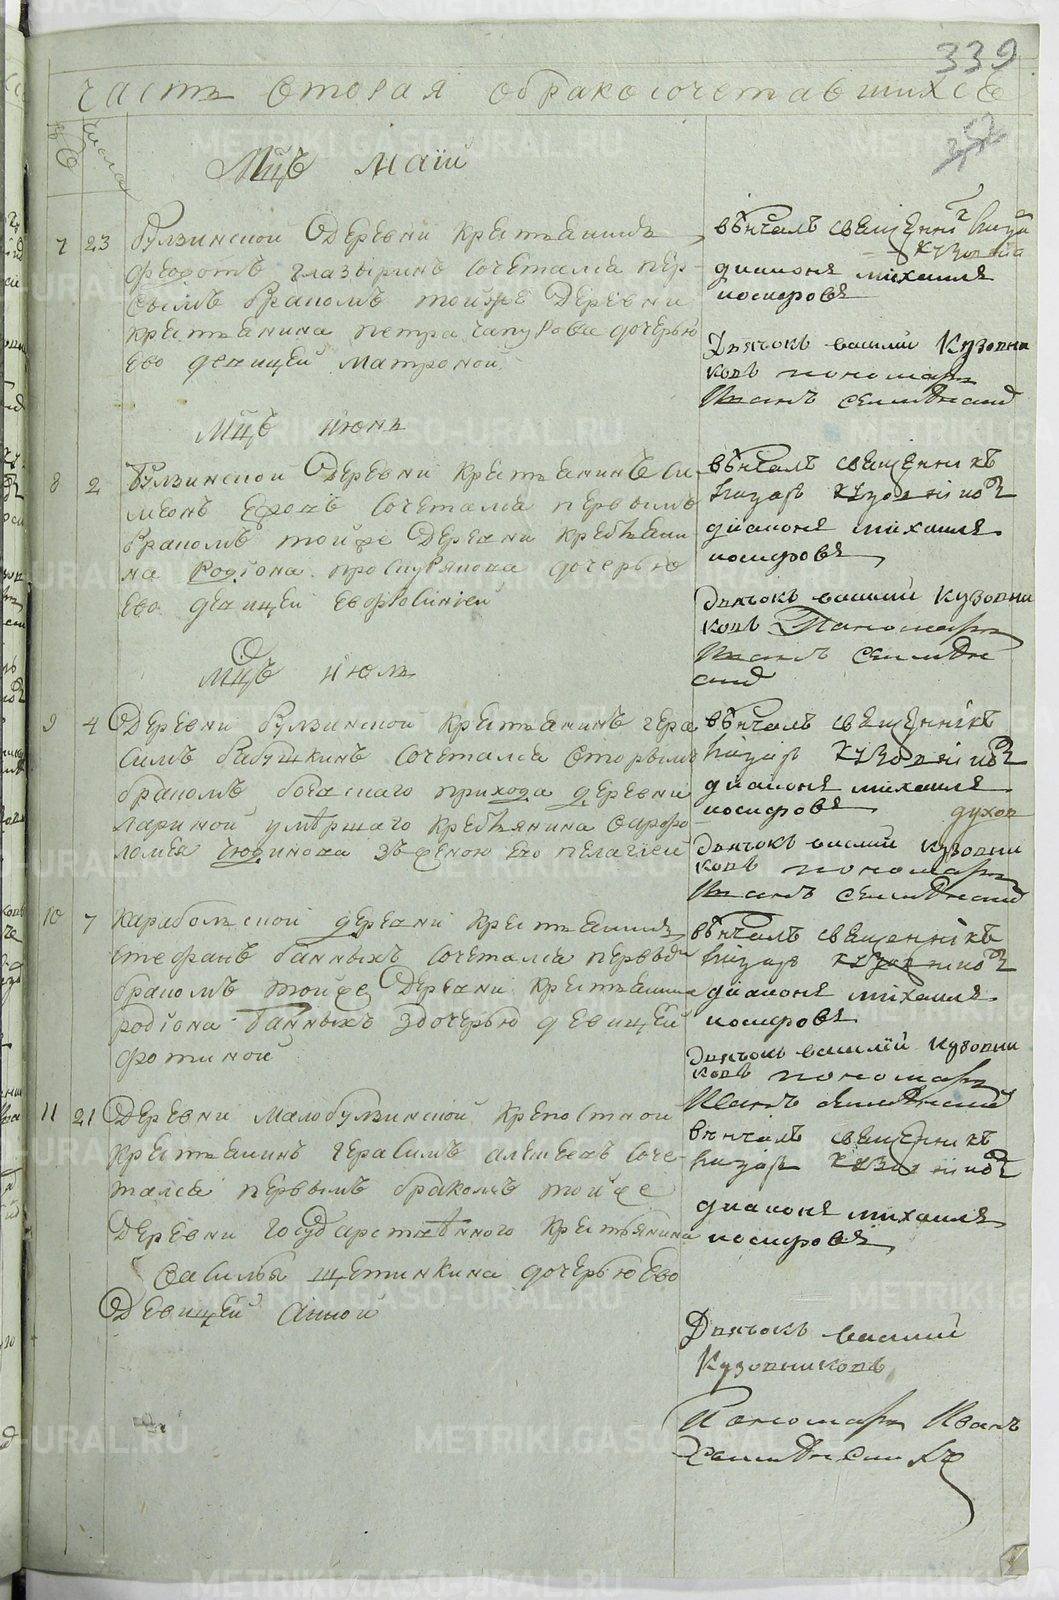 339
часть вторая обракосочетавшихсѐ
числа
252
Мцъ маiй
7 23 булзинской деревни крестьянинъ
федотъ глазыринъ сочетался пер-
вымъ бракомъ тойже деревни
крестьянина петра чапурова дочерью
ево девицей матроной
вѣнчалъ священ
диаконъ михаилъ
иосифовъ
Дьячокъ василий Кузовни
ковъ пономарь
Иванъ
Мцъ июнь
8 2 булзинской деревни крестьянинъ си
меонъ сочетался первымъ
бракомъ тойже деревни крестьяни
на родiона проскурякова дочерью
ево девицей евфросинiей
вѣнчалъ священникъ
кузовниковъ
диаконъ михаилъ
иосифовъ
Дьячокъ василий Кузовни
ковъ Пономарь
Иванъ
Мцъ июль
9 4 деревни булзинской крестьянинъ гера
симъ бабушкинъ сочетался вторымъ
бракомъ прихода деревни
лариной умѣршаго крестьянина варфо
ломея зъ женою ево пелагiеи
вѣнчалъ священнiкъ
кузовниковъ
диаконъ михаилъ
иосифовъ
духов
Дьячокъ василий кузовни
ковъ пономарь
Иванъ
10 7 карабольской деревни крестьянинъ
стефанъ банныхъ сочетался первы
бракомъ тойже деревни крестьянина
родiона банныхъ здочерью девицей
фотиной
вѣнчалъ священнiкъ
кузовниковъ
диаконъ михаилъ
иосифовъ
Дьячокъ василiй кузовни
ковъ пономарь
Иванъ
11 21 деревни малобулзинской крепостной
крестьянинъ герасимъ алексеевъ соче-
тался первымъ бракомъ тойже
деревни государственного крестьянина
савилья щетинкина дочерью ево
девицей анной
вѣнчалъ священникъ
кузовниковъ
диаконъ михаилъ
иосифовъ
Дьячокъ василий
Кузовниковъ
Пономарь Иванъ
METRIKI.GASO-URAL.RU